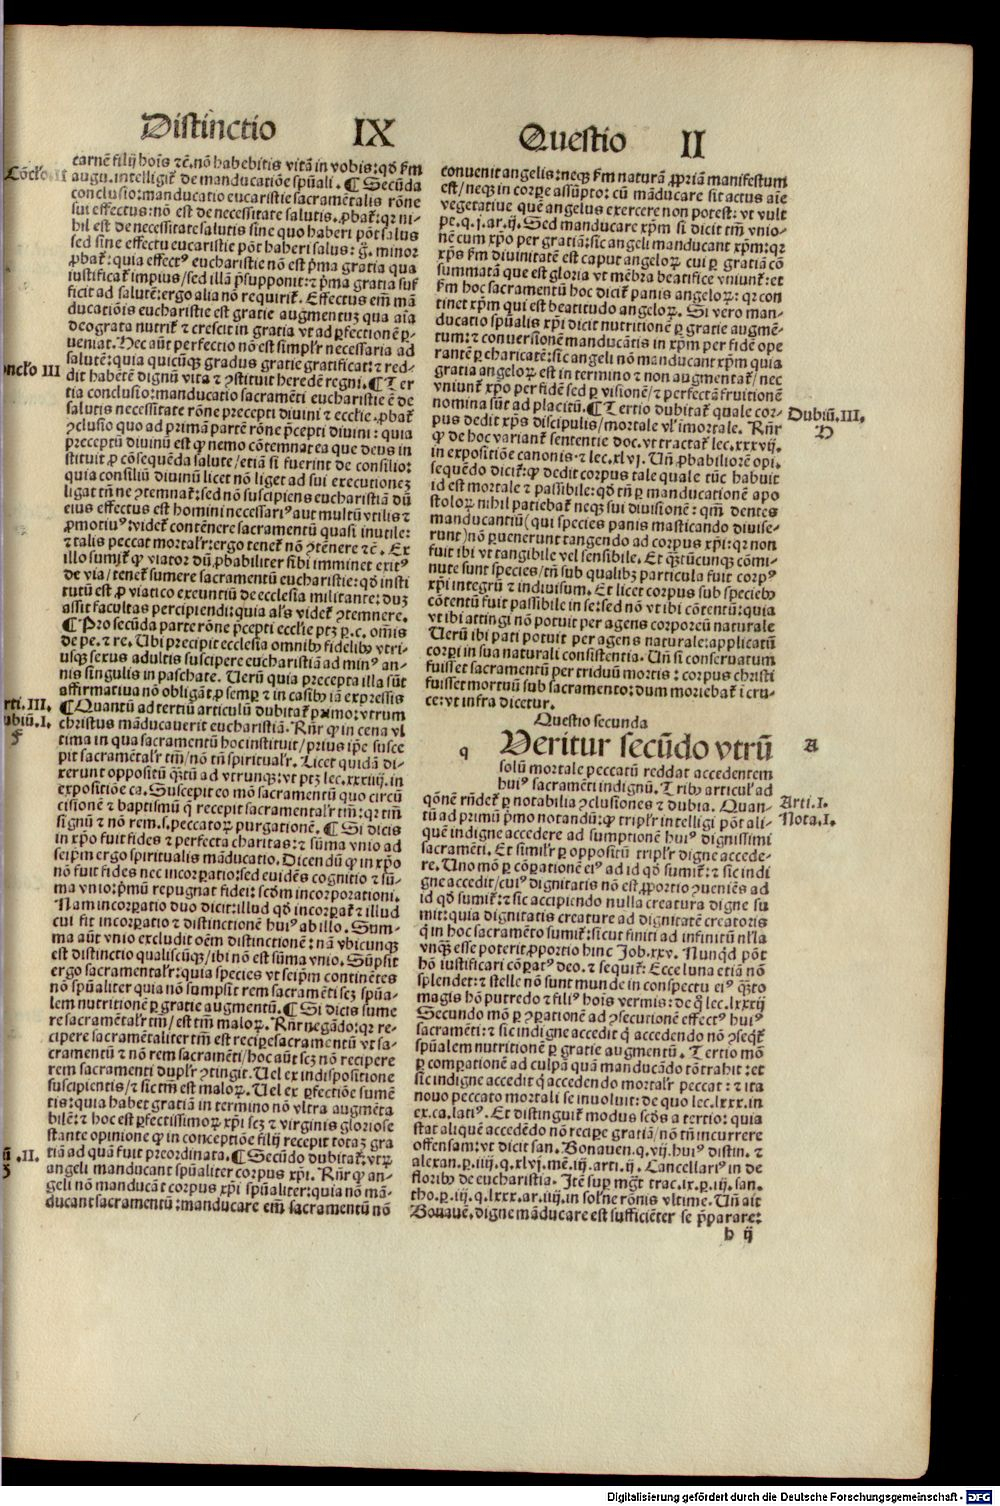 Distinctio IX
Questio II
carnē filij hoīs ⁊č. nō habebitis vitā in vobis: qđ ẜm
augu. intelligit̉ de manducatiōe spūali. ¶ Secūda
Cōcło II
conclusio: manducatio eucaristie sacramētalis rōne
sui effectus: nō est de necessitate salutis. ꝓbat̉: qꝛ ni-
hil est de necessitate salutis sine quo haberi pōt salus
sed sine effectu eucaristie pōt haberi salus: g̊. minor
ꝓbat̉: quia effectꝰ eucharistie nō est p̄ma gratia qua
iustificat̉ impius/sed illā p̄supponit: ⁊ p̄ma gratia suf
ficit ad salutē: ergo alia nō requirit̉. Effectus em̄ mā
ducatiōis eucharistie est gratie augmentuꝫ qua aīa
deo grata nutrit̉ ⁊ crescit in gratia vt ad ꝑfectionē ꝑ-
ueniat. Hec aūt perfectio nō est simplr̄ necessaria ad
salutē: quia quicūqꝫ gradus gratie gratificat̉: ⁊ red-
dit habētē dignū vita ⁊ ꝯstituit heredē regni. ¶ Ter
oncło III
tia conclusio: manducatio sacramēti eucharistie ē de
salutis necessitate rōne precepti diuini ⁊ ecclīe. ꝓbat̉
ꝯclusio quo ad primā partē rōne p̄cepti diuini: quia
preceptū diuinū est ꝙ nemo cōtemnat ea que deus in
stituit ꝓ cōsequēda salute/etiā si fuerint de consilio:
quia consiliū diuinū licet nō liget ad sui executioneꝫ
ligat tn̄ ne ꝯtemnat̉: sed nō suscipiens eucharistiā dū
eius effectus est homini necessariꝰ aut multū vtilis ⁊
ꝓmotiuꝰ: videt̉ contēnere sacramentū quasi inutile:
⁊ talis peccat mortalr̄: ergo tenet̉ nō ꝯtēnere ⁊č. Ex
illo sumit̉ ꝙ viator dū ꝓbabiliter sibi imminet exitꝰ
de via/tenet̉ sumere sacramentū eucharistie: qđ insti
tutū est ꝓ viatico exeuntiū de ecclesia militante: duꝫ
assit facultas percipiendi: quia al̄s videt̉ ꝯtemnere.
¶ Pro secūda parte rōne p̄cepti ecclīe ptꝫ ꝑ. c. om̄is
de pe. ⁊ re. Ubi precipit ecclesia omnibꝫ fidelibꝫ vtri-
usqꝫ sexus adultis suscipere eucharistiā ad minꝰ an-
nis singulis in paschate. Uerū quia precepta illa sūt
affirmatiua nō obligāt ꝓ semꝑ ⁊ in casibꝫ iā expressis
¶ Quantū ad tertiū articulū dubitat̉ primo: vtrum
rti. III.
ubiū. I.
christus māducauerit eucharistiā. Rn̄r ꝙ in cena vl
tima in qua sacramentū hoc instituit/prius ip̄e susce
pit sacramētalr̄ tm̄/nō tn̄ spiritualr̄. Licet quidā di-
xerunt oppositū q̄tū ad vtrunqꝫ: vt ptꝫ lec. xxxiiij. in
expositiōe ca. Suscepit eo mō sacramentū quo circū
cisionē ⁊ baptismū q̄ recepit sacramentalr̄ tm̄: qꝛ tm̄
signū ⁊ nō rem. s. peccatoꝝ purgationē. ¶ Si dicis
in xp̄o fuit fides ⁊ perfecta charitas: ⁊ sūma vnio ad
seip̄m ergo spiritualis māducatio. Dicendū ꝙ in xp̄o
nō fuit fides nec incorꝑatio: sed euidēs cognitio ⁊ sū-
ma vnio: p̄mū repugnat fidei: scd̄m incorporationi.
Nam incorꝑatio duo dicit: illud qđ incorꝑat̉ ⁊ illud
cui fit incorꝑatio ⁊ distinctionē huiꝰ ab illo. Sum-
ma aūt vnio excludit oēm distinctionē: nā vbicunqꝫ
est distinctio qualiscūqꝫ/ibi nō est sūma vnio. Sūpsit
ergo sacramentalr̄: quia species vt seip̄m continētes
nō spūaliter quia nō sumpsit rem sacramēti scꝫ spūa-
lem nutritionē ꝑ gratie augmentū. ¶ Si dicis sume
re sacramētalr̄ tm̄/est tm̄ maloꝝ. Rn̄r negādo: qꝛ re-
cipere sacramētaliter tm̄ est recipe sacramentū vt sa-
cramentū ⁊ nō rem sacramēti/hoc aūt scꝫ nō recipere
rem sacramenti duplr̄ ꝯtingit. Uel ex indispositione
suscipientis/⁊ sic tm̄ est maloꝝ. Uel ex ꝑfectiōe sumē
tis: quia habet gratiā in termino nō vltra augmēta
bilē: ⁊ hoc est ꝑfectissimoꝝ xp̄i scꝫ ⁊ virginis gloriose
stante opinione ꝙ in conceptiōe filij recepit totaꝫ gra
tiā ad quā fuit preordinata. ¶ Secūdo dubitat̉: vtꝝ
ū .II.
angeli manducant spūaliter corpus xp̄i. Rn̄r ꝙ an-
geli nō manducāt corpus xp̄i spūaliter: quia nō mā-
ducant sacramentū: manducare em̄ sacramentū nō
conuenit angelis: neqꝫ ẜm naturā ꝓpriā manifestum
est/neqꝫ in corꝑe assūpto: cū māducare sit actus aīe
vegetatiue quē angelus exercere non potest: vt vult
pe. q. j. ar. ij. Sed manducare xp̄m si dicit tm̄ vnio-
nē cum xp̄o per gratiā: sic angeli manducant xp̄m: qꝛ
xp̄s ẜm diuinitatē est caput angeloꝝ cui ꝑ gratiā cō
summatā que est gloria vt mēbra beatifice vniunt̉: et
ẜm hoc sacramentū hoc dicit̉ panis angeloꝝ: qꝛ con
tinet xp̄m qui est beatitudo angeloꝝ. Si vero man-
ducatio spūalis xp̄i dicit nutritionē ꝑ gratie augmē-
tum: ⁊ conuersionē manducātis in xp̄m per fidē ope
rantē ꝑ charitatē: sic angeli nō manducant xp̄m quia
gratia angeloꝝ est in termino ⁊ non augmentat̉/nec
vniunt̉ xp̄o per fidē sed ꝑ visionē/⁊ perfectā fruitionē
nomina sūt ad placitū. ¶ Tertio dubitat̉ quale cor-
Dubiū. III.
D
pus dedit xp̄s discipulis/mortale vl̄ imortale. Rn̄r
ꝙ de hoc variant̉ sententie doc. vt tractat̉ lec. xxxvij.
in expositiōe canonis ⁊ lec. xlvj. Un̄ ꝓbabiliorē opi.
sequēdo dicit̉: ꝙ dedit corpus tale quale tūc habuit
id est mortale ⁊ passibile: qđ tn̄ ꝑ manducationē apo
stoloꝝ nihil patiebat̉ neqꝫ sui diuisionē: qm̄ dentes
manducantiū (qui species panis masticando diuise-
runt) nō ꝑuenerunt tangendo ad corpus xp̄i: qꝛ non
fuit ibi vt tangibile vel sensibile. Et q̄tūcunqꝫ cōmi-
nute sunt species/tn̄ sub qualibꝫ particula fuit corpꝰ
xp̄i integrū ⁊ indiuisum. Et licet corpus sub speciebꝫ
cōtentū fuit passibile in se: sed nō vt ibi cōtentū: quia
vt ibi attingi nō potuit per agens corporeū naturale
Uerū ibi pati potuit per agens naturale: applicatū
corꝑi in sua naturali consistentia. Un̄ si conseruatum
fuisset sacramentū per triduū mortis: corpus christi
fuisset mortuū sub sacramento: dum moriebat̉ i cru-
ce: vt infra dicetur.
Questio secunda
q Ueritur secūdo vtrū
A
solū mortale peccatū reddat accedentem
huiꝰ sacramēti indignū. Tribꝫ articul̉ ad
qōnē rn̄det̉ ꝑ notabilia ꝯclusiones ⁊ dubia. Quan-
Arti. I.
tū ad primū p̄mo notandū: ꝙ triplr̄ intelligi pōt ali-
Nota. I.
quē indigne accedere ad sumptionē huiꝰ dignissimi
sacramēti. Et similr̄ ꝑ oppositū triplr̄ digne accede-
re. Uno mō ꝑ cōꝑationē eiꝰ ad id qđ sumit̉: ⁊ sic indi
gne accedit/cuiꝰ dignitatis nō est ꝓportio ꝯueniēs ad
id qđ sumit̉: ⁊ sic accipiendo nulla creatura digne su
mit: quia dignitatis creature ad dignitatē creatoris
q̄ in hoc sacramēto sumit̉: sicut finiti ad infinitū nl̄la
vnqꝫ esse poterit ꝓportio hinc Job. xxv. Nunqđ pōt
hō iustificari cōꝑatꝰ deo. ⁊ sequit̉: Ecce luna etiā nō
splendet: ⁊ stelle nō sunt munde in conspectu eiꝰ q̄to
magis hō putredo ⁊ filiꝰ hoīs vermis: de q̊ lec. lxxij
Secundo mō ꝑ ꝯꝑationē ad ꝯsecutionē effectꝰ huiꝰ
sacramēti: ⁊ sic indigne accedit q̄ accedendo nō ꝯseqt̉
spūalem nutritionē ꝑ gratie augmentū. Tertio mō
ꝑ comꝑationē ad culpā quā manducādo cōtrahit: et
sic indigne accedit q̄ accedendo mortalr̄ peccat: ⁊ ita
nouo peccato mortali se inuoluit: de quo lec. lxxx. in
ex. ca. latiꝰ. Et distinguit̉ modus scd̄s a tertio: quia
stat aliquē accedēdo nō recipe gratiā/nō tn̄ incurrere
offensam: vt dicit san. Bonauen. q. vij. huiꝰ distin. ⁊
alexan. ꝑ. iiij. q. xlvj. mē. iij. arti. ij. Cancellariꝰ in de
floribꝫ de eucharistia. Itē suꝑ mḡt trac. ix. ꝑ. iij. san.
tho. ꝑ. iij. q. lxxx. ar. iiij. in sol'ne rōnis vltime. Un̄ ait
Bonauē. digne māducare est sufficiēter se p̄parare:
b ij
Digitalisierung gefördert durch die Deutsche Forschungsgemeinschaft - DFG